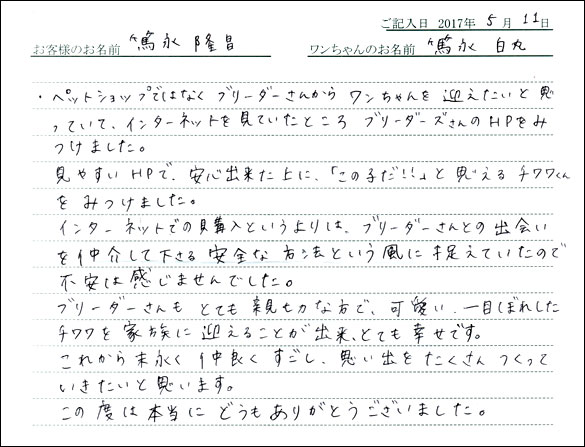 ご記入日 2017年 5月 11日
お客様のお名前 篤永 隆昌 ワンちゃんのお名前 篤永 白丸
・ペットショップではなく ブリーダーさんから ワンちゃんを 迎えたいと思
っていて、インターネットを見ていたところ ブリーダーズさんのHPをみ
つけました。
見やすいHPで、安心出来た上に、「この子だ!!」と思えるチワワくん
をみつけました。
インターネットでの購入というよりは、ブリーダーさんとの出会い
を仲介して下さる安全な方法という風に捉えていたので
不安は感じませんでした。
ブリーダーさんも とても親切な方で、可愛い、一目ぼれした
チワワを家族に迎えることが出来、とても幸せです。
これから末永く仲良くすごし、思い出をたくさんつくって
いきたいと思います。
この度は本当にどうもありがとうございました。